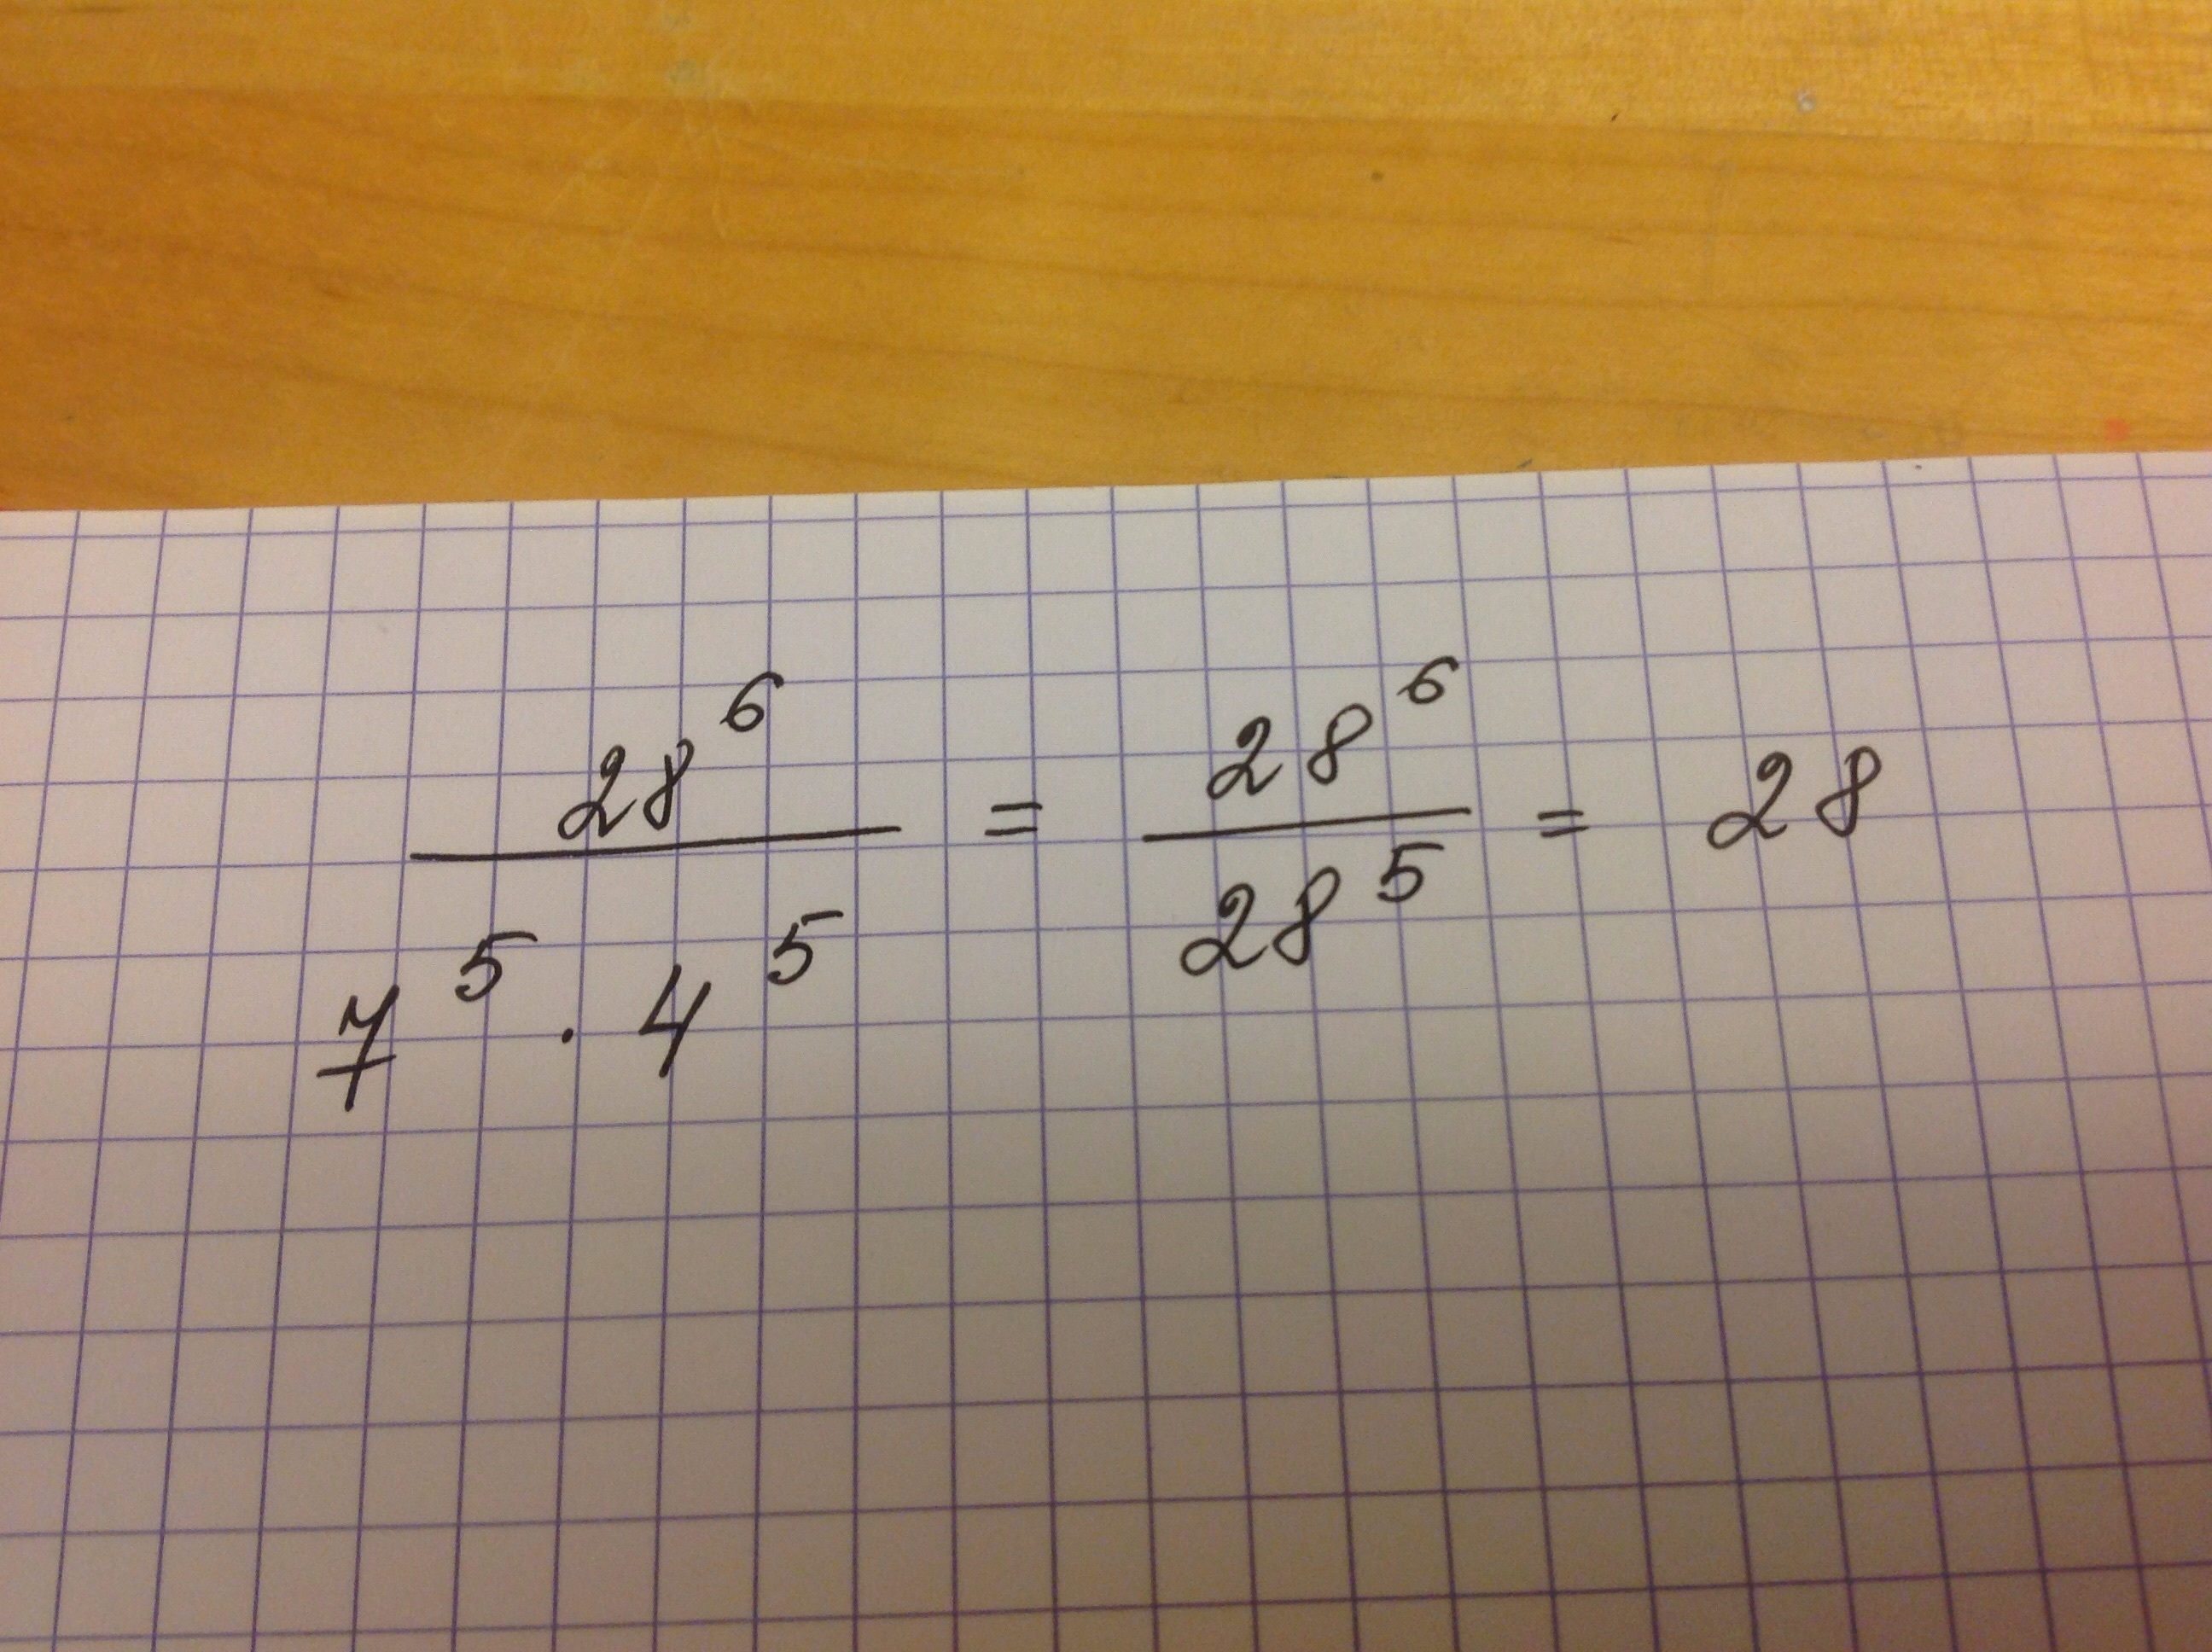 28⁶ / 7⁵ · 4⁵ = 28⁶ / 28⁵ = 28